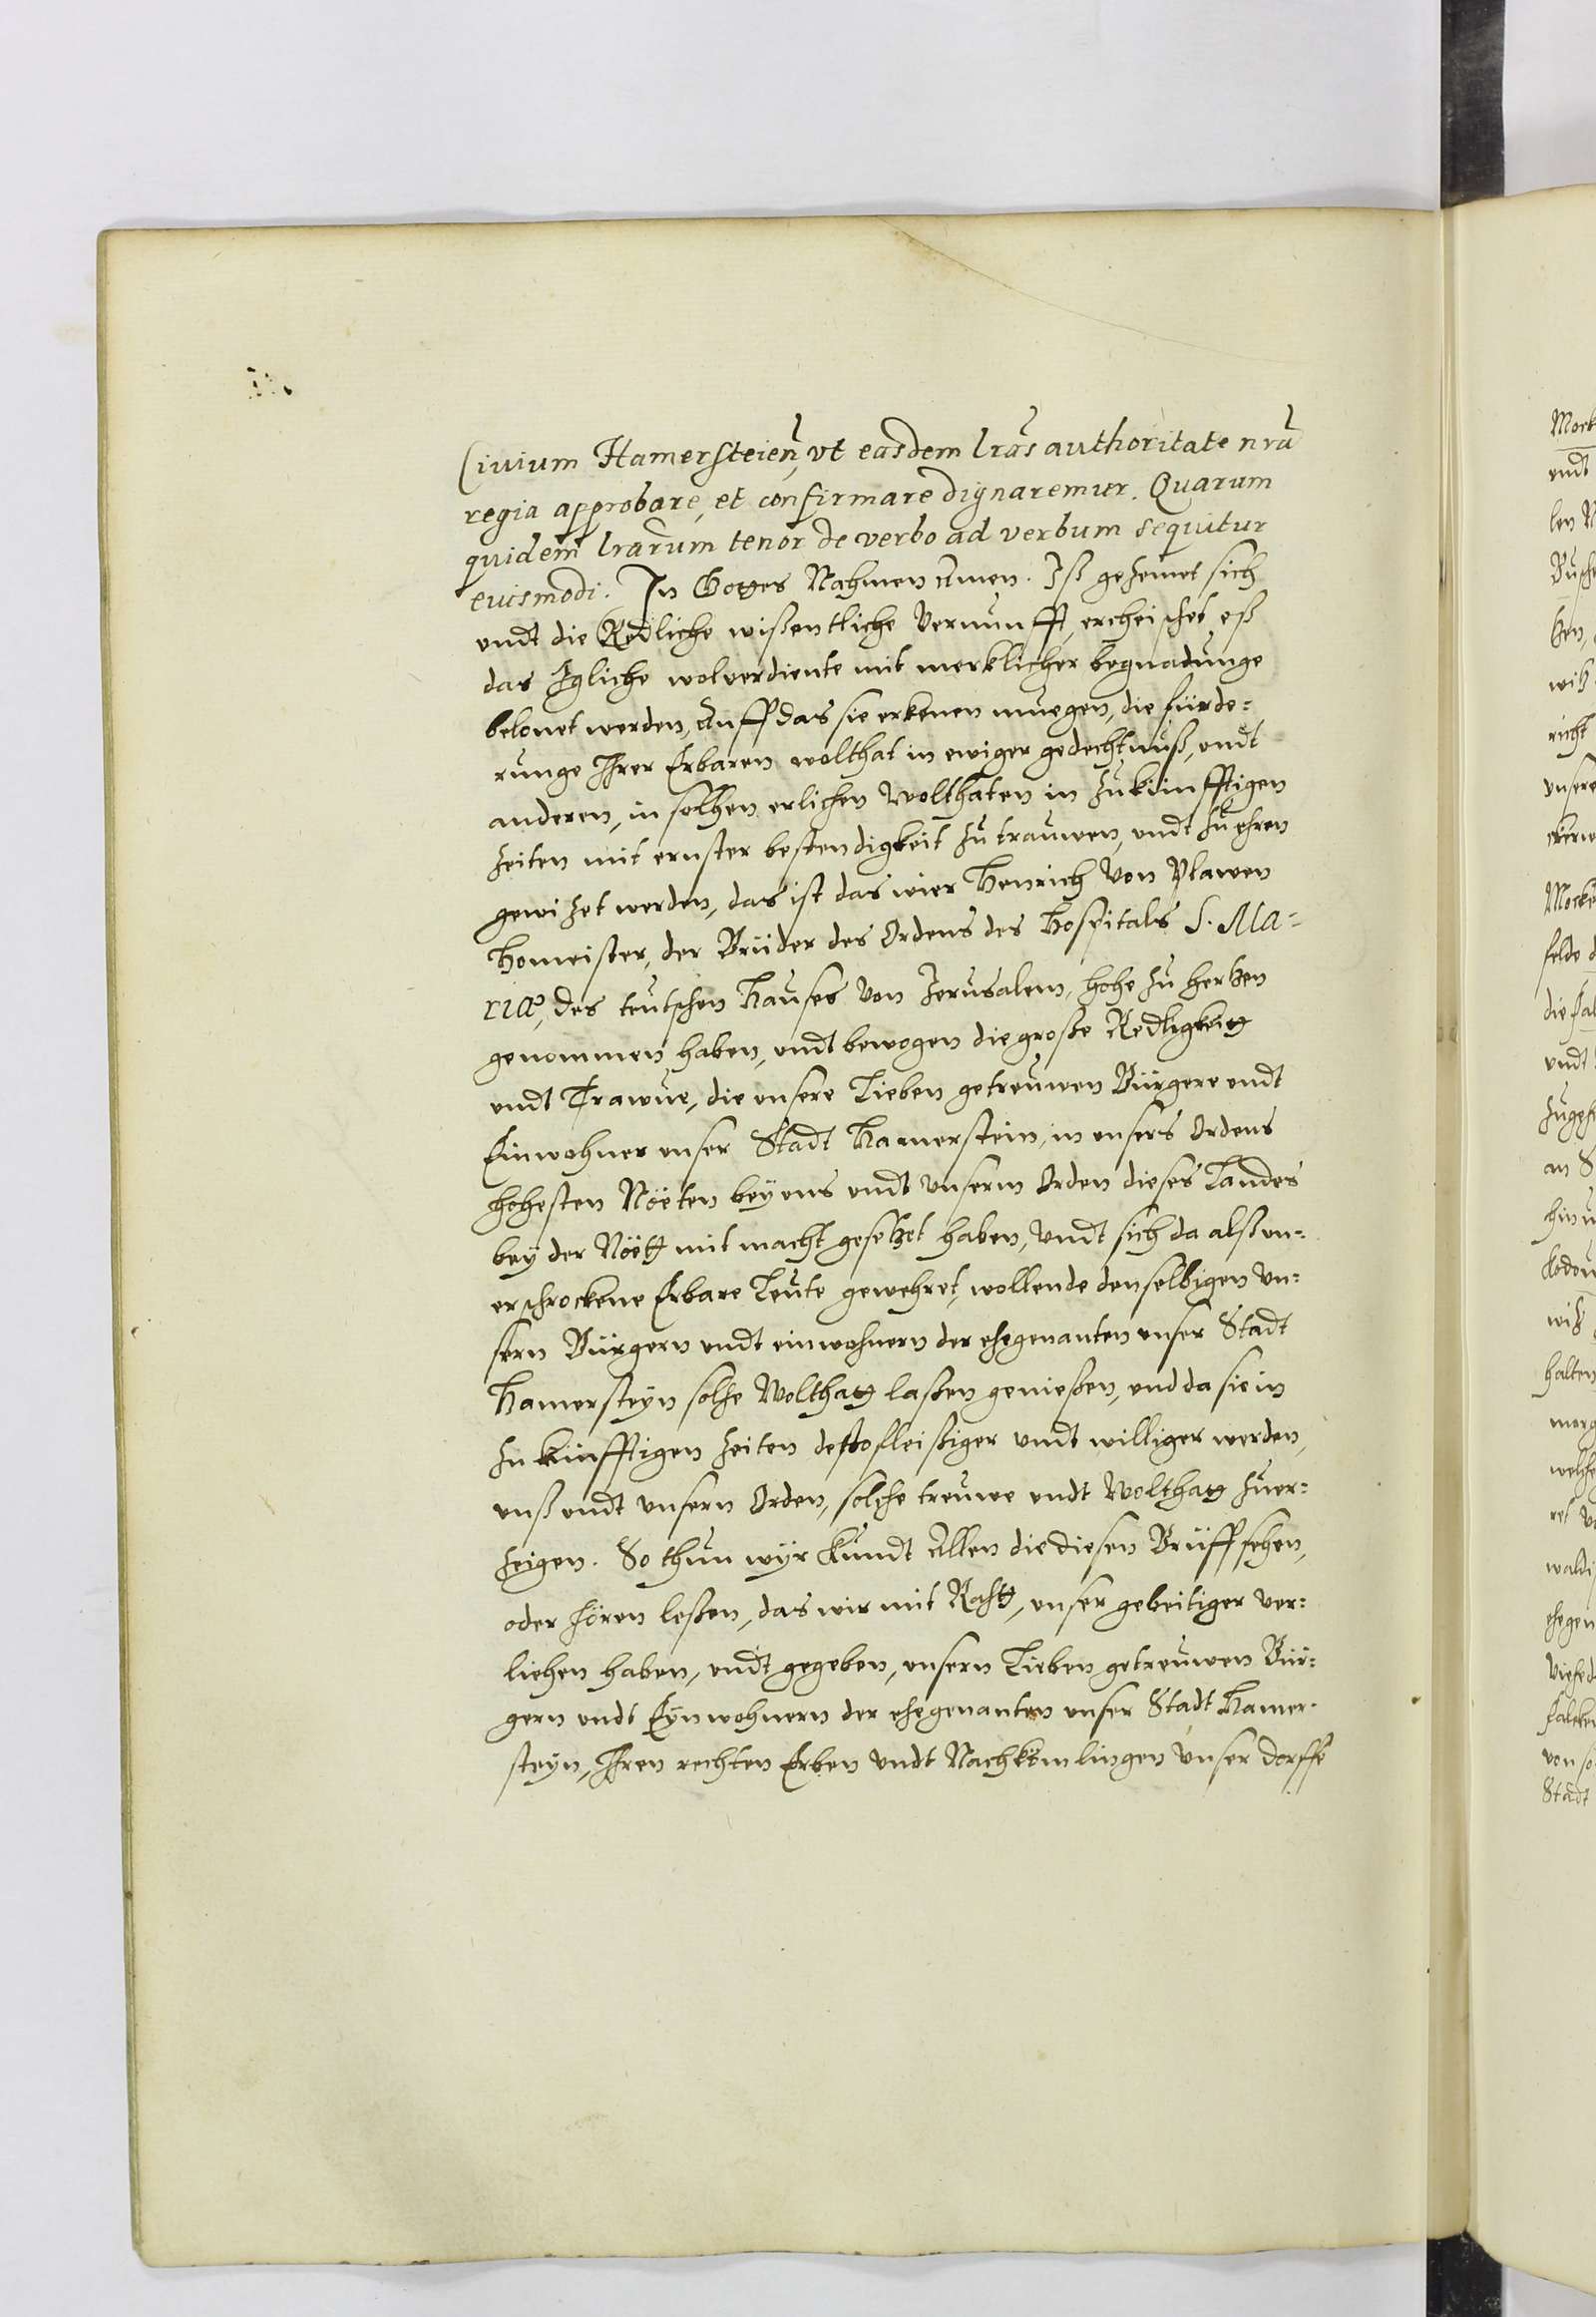 Civium Hamersteien̄, vt easdem lrãs authoritate nrã
regia approbare, et confirmare dignaremur. Quarum
quidem lrarum tenor de verbo ad verbum sequitur
euismodi. In Gottes Nahmen Amen. Iß geZemet sich
vndt die Redliche wißentliche Vernunfft, ercheischet eß
das Igliche wolverdiente mit merklicher begnadunge
belonet werden, Auff das sie erkenen muegen, die fürde-
runge Ihrer Erbaren wolthat in ewiger gedechtnuß, vndt
anderen, in solhen erlichen Wolthaten in Zukünfftigen
Zeiten mit ernster bestendigkeit Zu trauwen, vndt Zu ehren
gewiZet werden, das ist das wier Henrich von Plawen
Homeister, der Brüder des Ordens des Hospitals S. Ma-
riæ, des teutschen Hauses von Jerusalem, hohe Zu hertzen
genommen haben, vndt bewogen die große Redligkeitt
vndt Trawue, die vnsere Lieben getreuwen Bürgere vndt
Einwohner vnser Stadt Hamerstein, in vnsers Ordens
hohesten Nöeten bey vns vndt vnserm Orden dieses Landes
bey der Nöett mit macht gesetzet haben, vndt sich da alß vn-
erschrockene Erbare Leute gewehret, wollende denselbigen vn-
sern Bürgern vndt einwohnern der ehegenanten vnser Stadt
Hamersteyn solhe Wolthatt laßen genießen, vnd da sie in
Zukünfftigen Zeiten destofleißiger vndt williger werden,
vnß vndt vnsern Orden, solche treuwe vndt Wolthatt Zuer-
Zeigen. So thun wyr kundt Allen die diesen Brüff sehen,
oder hören leßen, das wir mit Rahtt, vnser gebeitiger ver-
liehen haben, vndt gegeben, vnsern Lieben getreuwen Bür-
gern vndt Eynwohnern der ehegenanten vnser Stadt Hamer-
steyn, Ihren rechten Erben vndt Nachkömlingen vnser dorffe